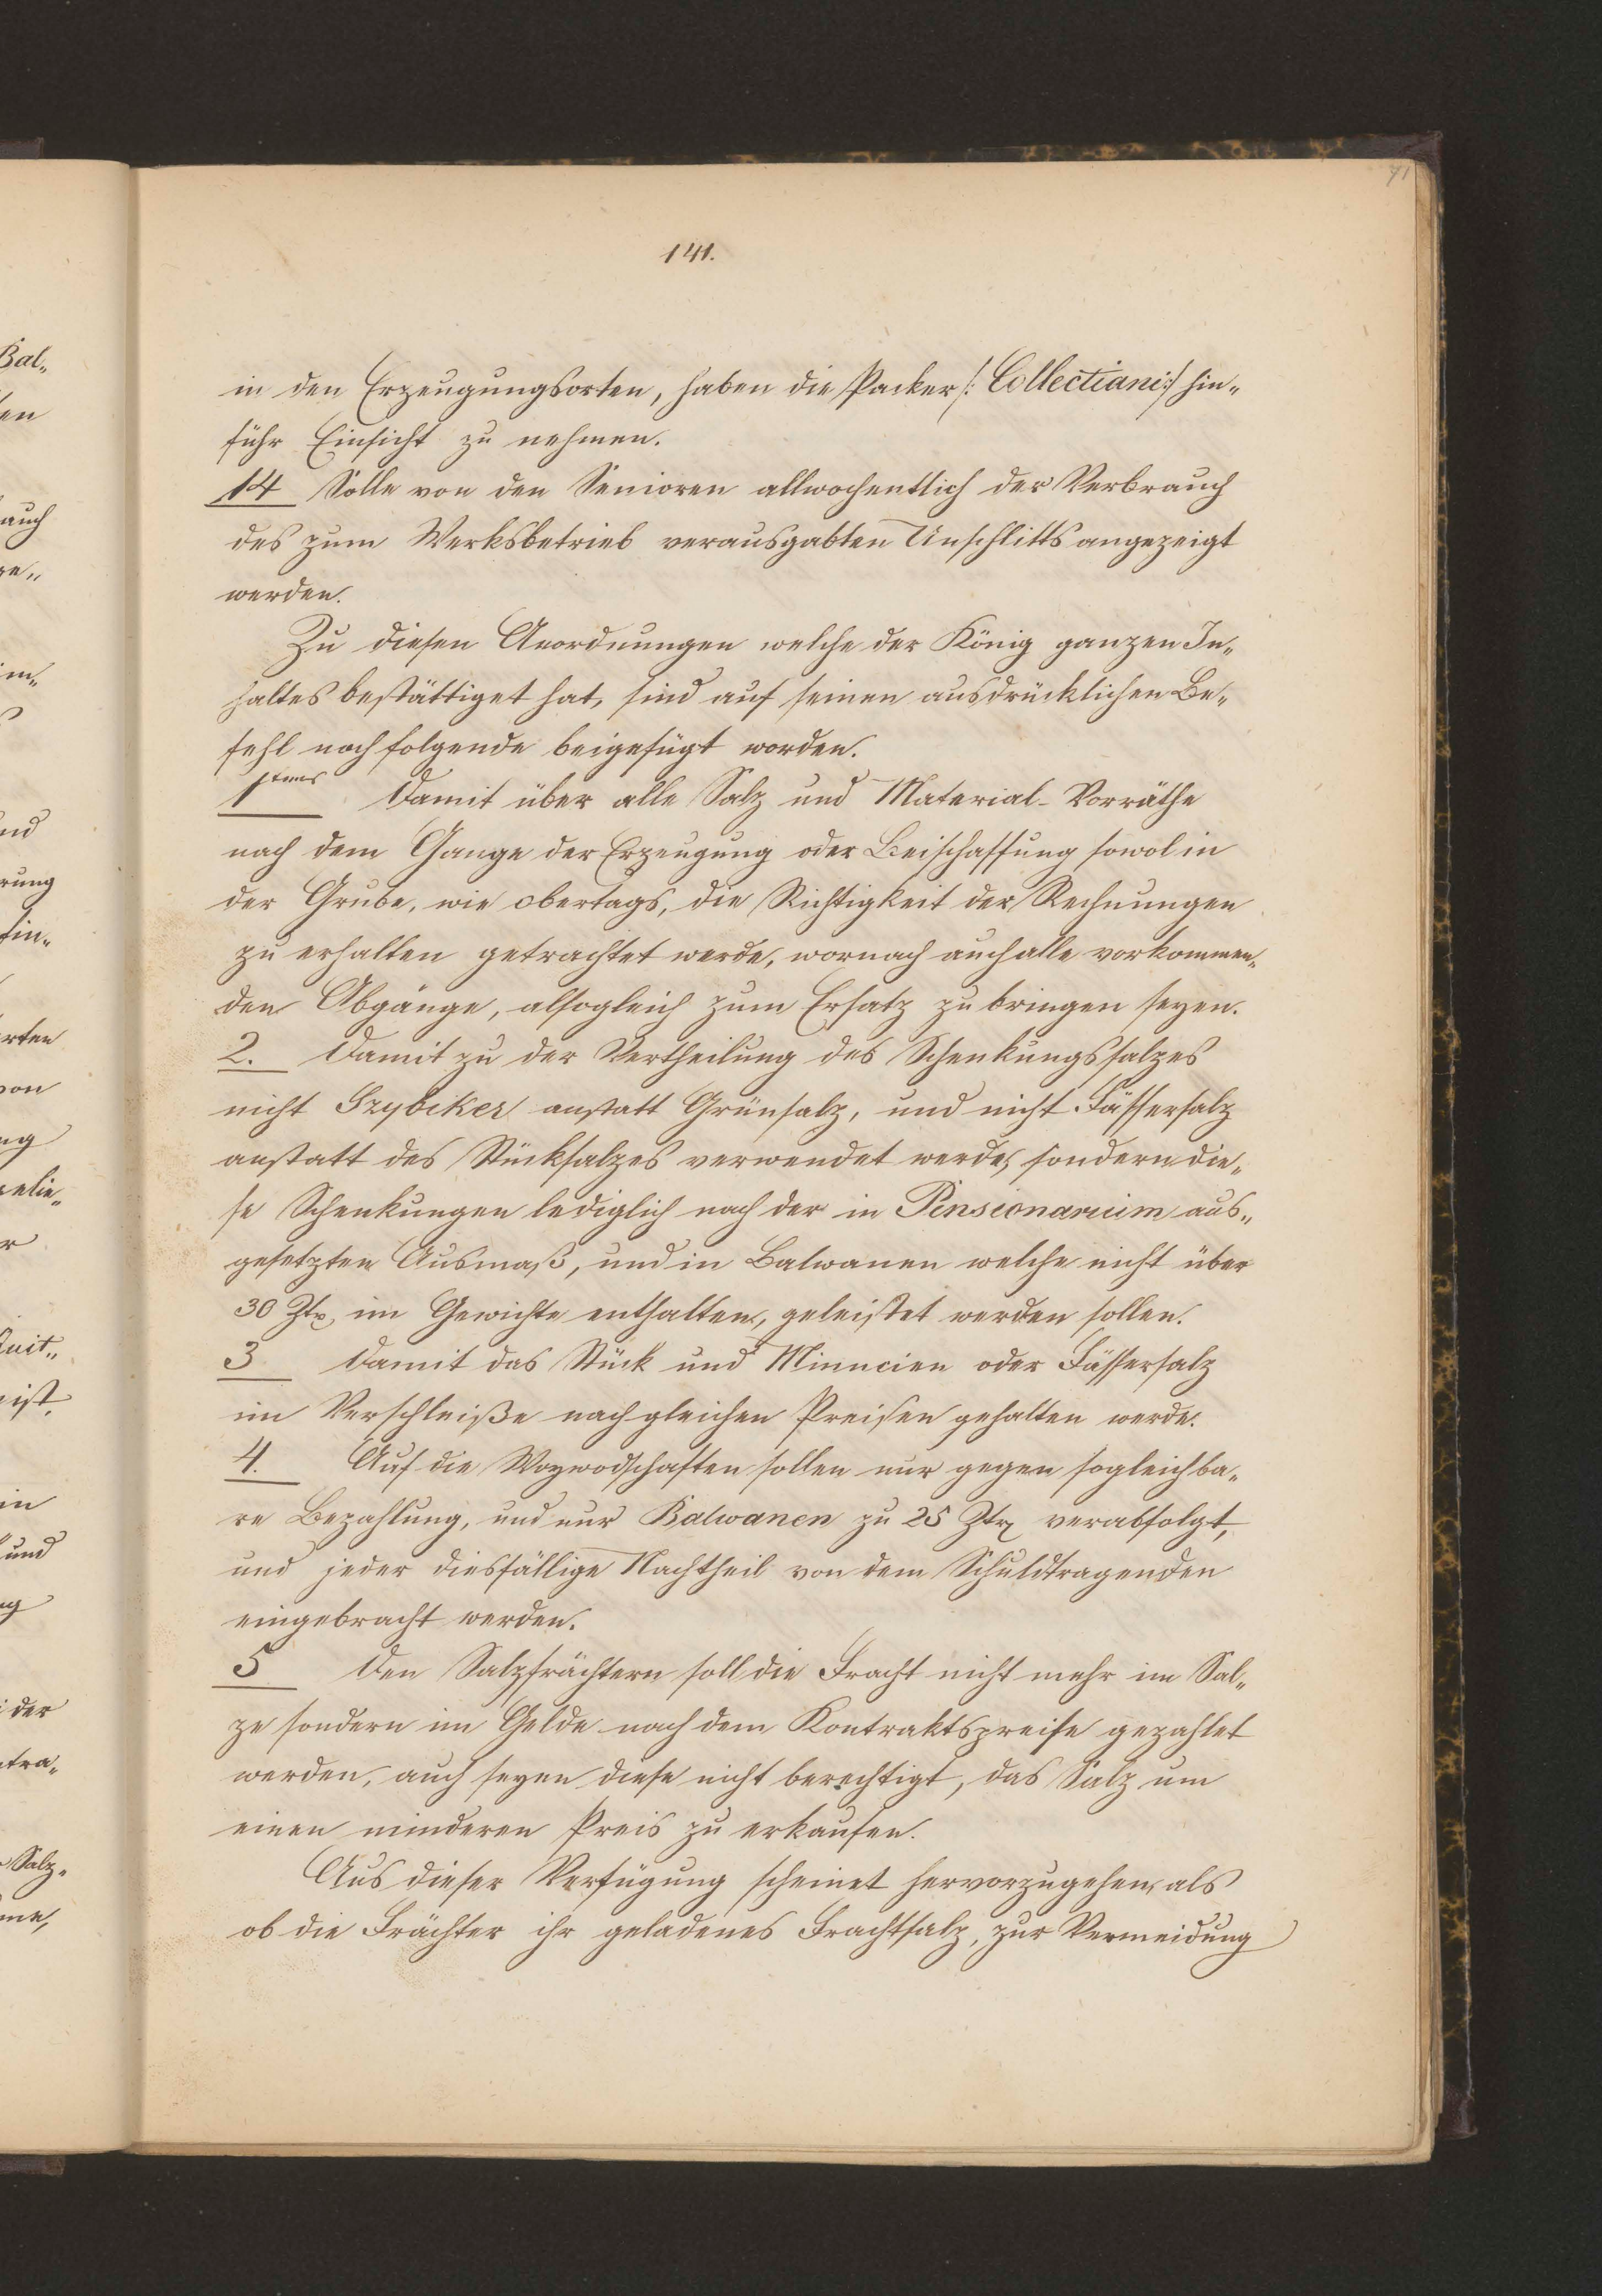 71
141.
in den Erzeugungsorten, haben die Packer /: Collectiani :/ hin„
führ Einsicht zu nehmen.
14 Solle von den Senioren allwochentlich der Verbrauch
des zum Werksbetrieb verausgabten Unschlitts angezeigt
werden.
Zu diesen Anordnungen welche der König ganzen In„
haltes bestättiget hat, sind auf seinen ausdrücklichen Be„
fehl nachfolgende beigefügt worden.
1tens Damit über alle Salz und Material-Vorräthe
nach dem Gange der Erzeugung oder Beischaffung sowol in
der Grube, wie obertags, die Richtigkeit der Rechnungen
zu erhalten getrachtet werde, wornach auch alle vorkommen„
den Abgänge, alsogleich zum Ersatz zu bringen seyen.
2. Damit zu der Vertheilung des Schenkungssalzes
nicht Szybiker anstatt Grünsalz, und nicht Fässersalz
anstatt des Stücksalzes verwendet werde, sondern die„
se Schenkungen lediglich nach der in Pensionarium aus„
gesetzten Ausmaß, und in Balwanen welche nicht über
30 Ztr, im Gewichte enthalten, geleistet werden sollen.
3 Damit das Stück und Minucien oder Fässersalz
im Verschleiße nach gleichen Preisen gehalten werde.
4. Auf die Woywodschaften sollen nur gegen sogleich ba„
re Bezahlung, und nur Balwanen zu 25 Ztr verabfolgt,
und jeder diesfällige Nachtheil von dem Schuldtragenden
eingebracht werden.
5 Den Salzfrächtern soll die Fracht nicht mehr im Sal„
ze sondern im Gelde nach dem Kontraktspreise gezahlet
werden, auch seyen diese nicht berechtigt, das Salz um
einen minderen Preis zu erkaufen.
Aus dieser Verfügung scheinet hervorzugehen, als
ob die Frächter ihr geladenes Frachtsalz, zur Vermeidung